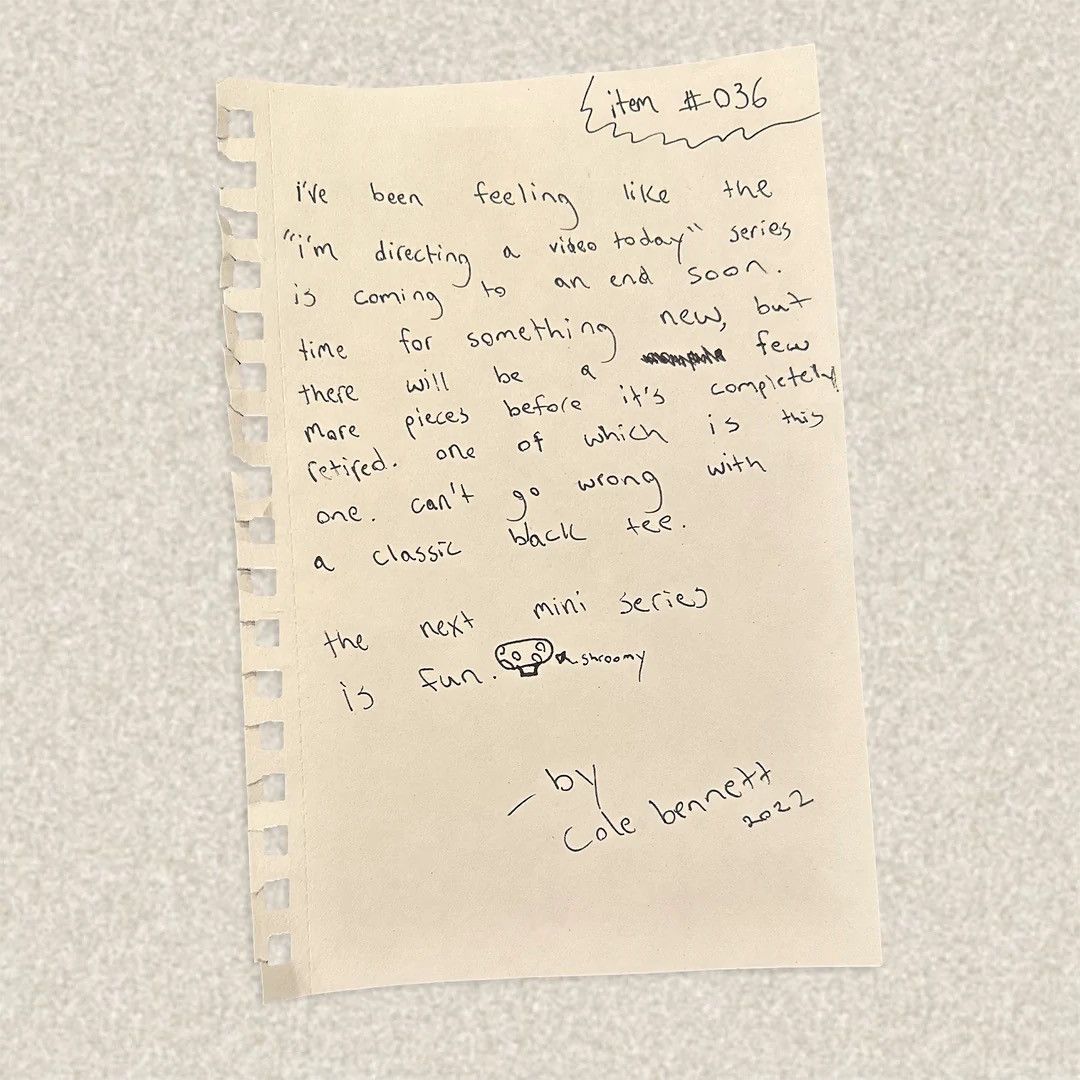 item #036
i've been feeling like the
"i'm directing a video today" series
is coming to an end soon.
time for something new, but
there will be a few
more pieces before it's completely
retired. one of which is this
one. can't go wrong with
a classic black tee.
the next mini series
is fun. shroomy
– by
cole bennett
2022